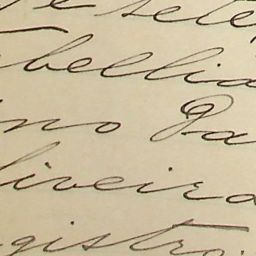 e sete
abellia
ino Pa
liveira
gistro